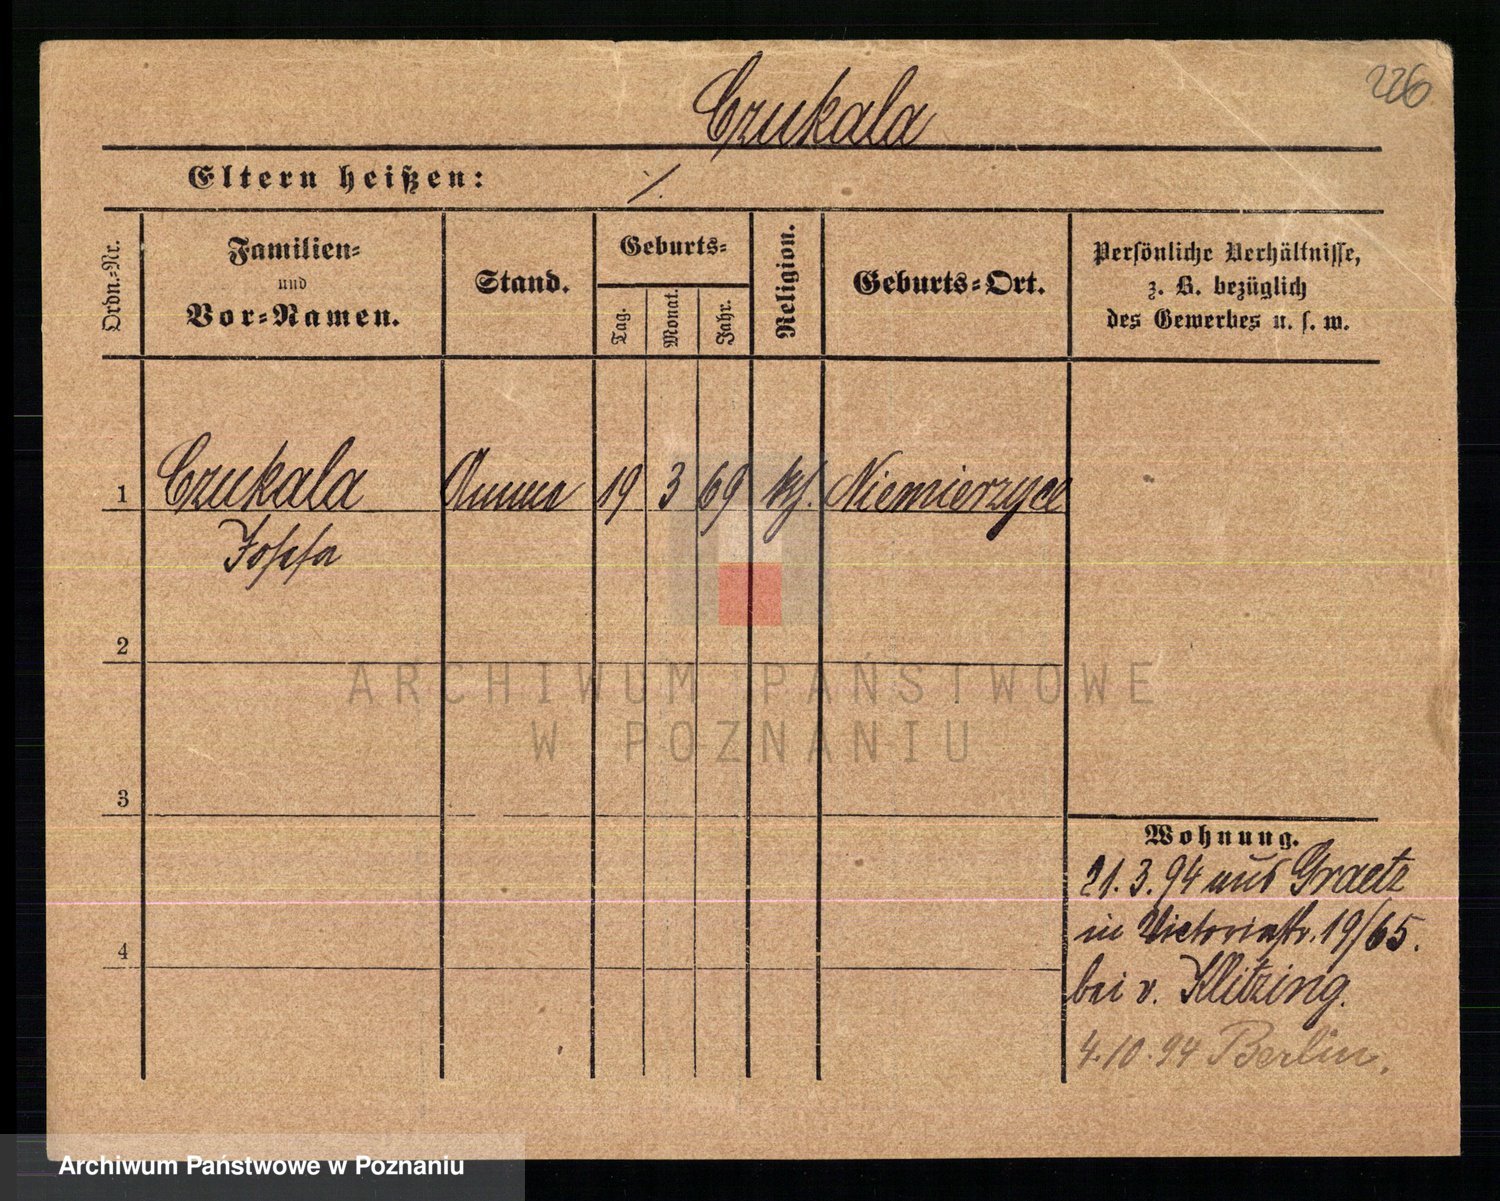 226
Czukala
Eltern heißen: ./.
Ordn.-Nr.
Familien-
und
Vor-Namen.
Stand.
Geburts-
Tag.
Monat.
Jahr.
Religion.
Geburts-Ort.
Persönliche Verhältnisse,
z. B. bezüglich
des Gewerbes u. s. w.
1 Czukala Amme 19 3 69 kh. Niemierzyce
Josefa
2
3
4
Wohnung.
21.3.94 aus Graetz
in Victoriastr. 19/65.
bei v. Klitzing.
4.10.94 Berlin.
ARCHIWUM PAŃSTWOWE
W POZNANIU
Archiwum Państwowe w Poznaniu